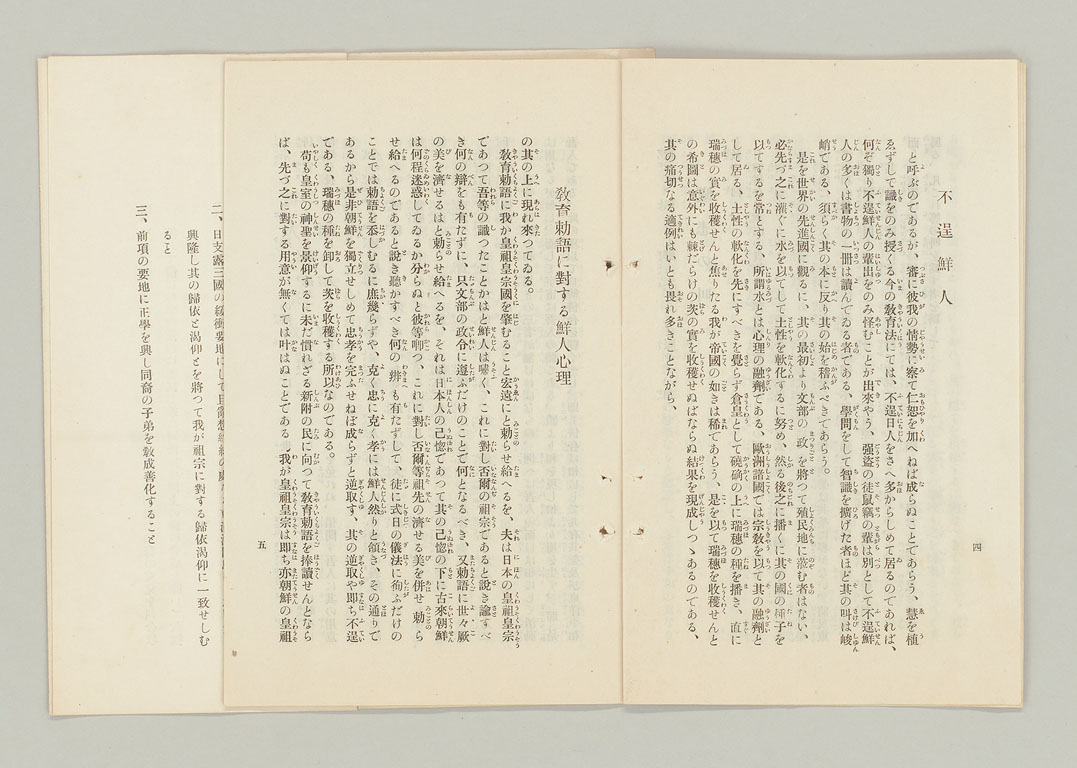 四
不逞鮮人
と呼ぶのであるが、審に彼我の情勢に察て仁恕を加へねば成らぬことであらう、慧を植
ゑずして識をのみ授くる今の教育法にては、不逞日人をさへ多からしめて居るのであれば、
何ぞ獨り不逞鮮人の輩出をのみ怪むことが出來やう、強盜の徒鼠竊の輩は別として不逞鮮
人の多くは書物の一冊は讀んでゐる者である、學問をして智識を擴げた者ほど其の叫は峻
峭である、須らく其の本に反り其の始を稽ふべきであらう。
是を世界の先進國に觀るに、其の最初より文部の政を將つて殖民地に莅む者はない、
必先づ之に灌ぐに水を以てして土性を軟化するに努め、然る後之に播くに其の國の種子を
以てするを常とする、所謂水とは心理の融劑である、歐洲諸國では宗教を以て其の融劑と
して居る、土性の軟化を先にすべきを覺らず倉皇として磽确の上に瑞穗の種を播き、直に
瑞穗の實を收穫せんと焦りたる我が帝國の如きは稀であらう、是を以て瑞穗を收穫せんと
の希圖は意外にも棘だらけの茨の實を收穫せねばならぬ結果を現成しつゝあるのである、
其の痛切なる適例はいとも畏れ多きことながら、
教育勅語に對する鮮人心理
の其の上に現れ來つてゐる。
教育勅語に我か皇祖皇宗國を肇むること宏遠にと勅らせ給へるを、夫は日本の皇祖皇宗
であつて吾等の識つたことかはと鮮人は嘯く、これに對し否爾の祖宗であると説き諭すべ
き何の辯をも有たずに、只文部の政令に遵ふだけのことで何となるべき、又勅語に世々厥
の美を濟せるはと勅らせ給へるを、それは日本人の己惚であつて其の己惚の下に古來朝鮮
は何程迷惑してゐるか分らぬと彼等唧つ、これに對し否爾等祖先の濟せる美を併せ勅ら
せ給へるのであると説き聽かすべき何の辨も有たずして、徒に式日の儀法に徇ふだけの
ことでは勅語を忝しむるに庶幾らずや、克く忠に克く孝には鮮人然りと頷き、その通りで
あるから是非朝鮮を獨立せしめて忠孝を完ふせねば成らずと逆取す、其の逆取や即ち不逞
である、瑞穗の種を卸して茨を收穫する所以なのである。
苟も皇室の神聖を景仰するに未だ慣れざる新附の民に向つて教育勅語を捧讀せんとなら
ば、先づ之に對する用意が無くては叶はぬことである、我が皇祖皇宗は即ち亦朝鮮の皇祖
五
二、日支露三國の緩衝要地にして且
興隆し其の歸依と渴仰とを將つて我が祖宗に對する歸依渴仰に一致せしむ
ること
三、前項の要地に正學を興し同裔の子弟を敎成善化すること